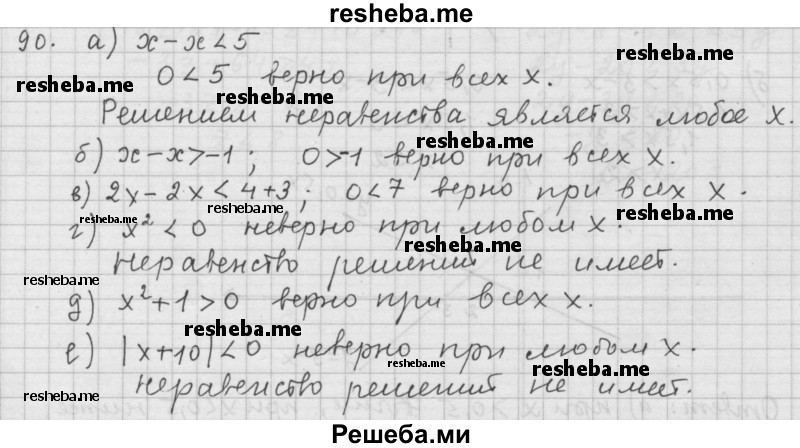 resheba.me
90. а) x-x<5
0<5 верно при всех x.
resheba.me
resheba.me
resheba.me
Решением неравенства является любое x.
resheba.me
б) x-x>-1; 0>-1 верно при всех x.
в) 2x-2x<4+3; 0<7 верно при всех x.
resheba.me
resheba.me
г) x²<0 неверно при любом x.
resheba.me
Неравенство решений не имеет.
resheba.me
д) x²+1>0 верно при всех x.
resheba.me
е) |x+10|<0 неверно при любом x.
resheba.me
resheba.me
resheba.me
Неравенство решений не имеет.
Решеба.ми